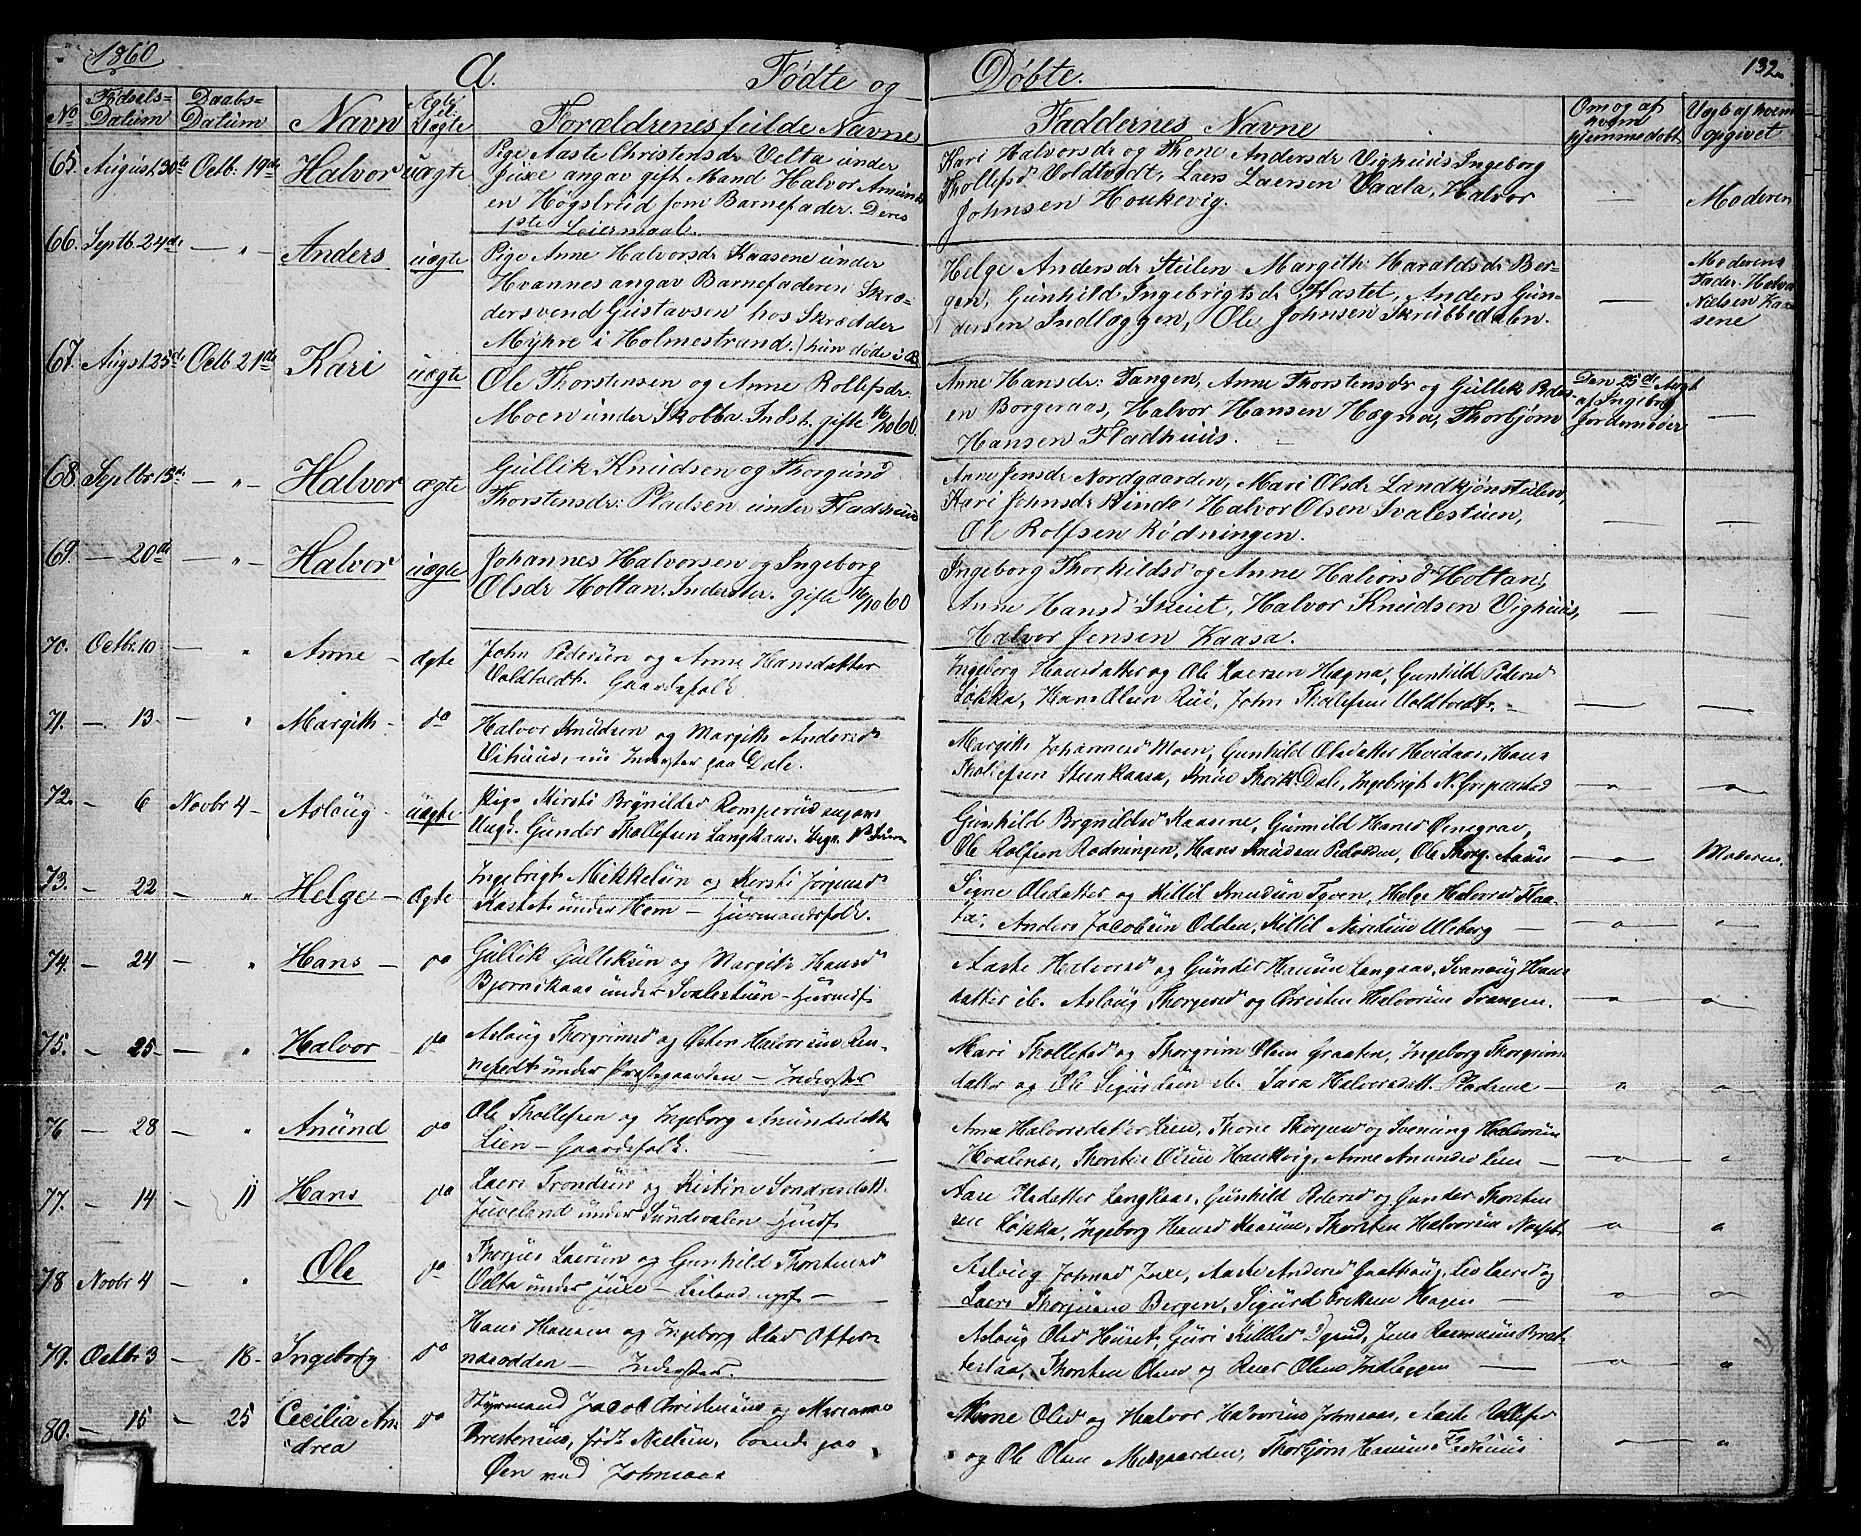 1860
A. Fødte og Døbte. 132
No Fødsels-Datum Daabs-Datum Navn Ægte el. Uægte Forældrenes fulde Navne Faddernes Navne Om og af hvem hjemmedøbt Uægt. af hvem opgivet
65. August 30te Octb: 19de Halvor uægte Pige Aaste Christensdr Velta under
Juxe angav gift Mand Halvor Amunds
en Høgstrud som Barnefader. Deres
1ste Leiermaal.
Kari Halvorsdr og Thone Andersdr Vighuus Ingeborg
Thollefsd Voldtvedt, Laers Laersen Vaala, Halvor
Johnsen Houkevig. — Moderen
66. Septb. 24de — " — Anders uægte Pige Anne Halvorsdr Kaasene under
Hvannes angav Barnefaderen Skræ-
dersvend Gustavsen hos Skrædder
Myhre i Holmestrand.
Helge Andersdr Steilen Margith Haraldsdr Ber-
gen, Gunhild Ingebrigtsdr Kastet, Anders Gun-
dersen Indlaggen, Ole Johnsen Skrubbedalen. — Moderens
Fader Halvor
Nielsen Kaa-
sene
67. Augst 25de Octb. 21de Kari uægte Ole Thorstensen og Anne Rollefsdr
Moen under Skolba. Indst. gifte 16/10 60.
Anne Hansdr: Tangen, Anne Thorstensdr og Gullik Peders-
en Borgeraas, Halvor Hansen Hægna, Thorbjørn
Hansen Fladhuus. Den 25de Augt
af Ingebrg
Jordemoder —
68. Septbr 15de — " — Halvor ægte Gullik Knudsen og Thorgund
Thorstensdr: Pladsen under Fladhuus
Anne Jensdr Nordgaarden, Mari Olsdr Landkjønsteilen,
Kari Johnsdr Rinde, Halvor Olsen Svalestuen,
Ole Rolfsen Rødningen. — —
69. — 20de — " — Halvor uægte Johannes Halvorsen og Ingeborg
Olsdr Holtan. Inderster. gifte 16/10 60
Ingeborg Thorkildsd og Anne Halvorsd Holtan,
Anne Hansd Skuet, Halvor Knudsen Vighuus,
Halvor Jensen Kaasa. —
70. Octbr 10 — " Anne — ægte John Pedersen og Anne Hansdatter
Voldtvedt. Gaardsfolk.
Ingeborg Hansdatter og Ole Laersen Hægna, Gunhild Pedersd
Løkka, Hans Olsen Rui, John Thollefsen Voldtvedt. — — —
71. — 13 — " Margith — do Halvor Knudsen og Margith Andersd
Vihuus, nu Inderster paa Dale.
Margith Johannesd Moen, Gunhild Olsdatter Hvidaas, Hans
Thollefsen Steenkaasa, Knud Thork. Dale, Ingebrigt N. Gripenstad — " — — " —
72. — 6 Novbr 4 — Aslaug — uægte Pige Kirsti Brynildsd Romperud angav
Ungk. Gunder Thollefsen Langkaas.
Gunhild Brynildsd Kaasene, Gunnild Hansd Ørnegrav,
Ole Rolfsen Rødningen, Hans Knudsen — " — Moderen
73. — 22 " Helge — Ægte Ingebrigt Mikkelsen og Kersti Jørgensd
Kastet under Hem — Huusmandsfolk.
Signe Olsdatter og Killil Knudsen Tyven, Helge Halvorsd Flaa-
ta, Anders Jacobsen Odden, Killil Uleberg — " — "
74. — 24 " Hans — do Gullik Gulliksen og Margith Hansd
Bjørnskaas under Svalestuen — Huusmf
Aaste Halvorsd og Gunder Hansen Langaas, Svanaug Hans
datter ib. Aslaug Thorgersd og Christen Halvorsen Tvangen. — " — "
75. — 25 — " Halvor do Aslaug Thorgrimsd og Østen Halvorsen
under Præstegaarden — Inderster
Mari Thollefsd og Thorgrim Olsen Graaten, Ingeborg Thorgrims
datter og Ole Sigurdsen ib. Sara Halvorsdatt. Pladsene — " "
76 — 28 — " Anund do Ole Thollefsen og Ingeborg Anundsdatt.
Lien — Gaardsfolk.
Anne Halvorsdatter Lien, Thone Thorjusd og Svenung Halvorsen
Hvalenæs, Thorsten Olsen Haukvig, Anne Anundsd Lien — " "
77. — 14 — 11 Hans do Laers Trondsen og Kistine Sondresdatt.
Juveland under Sundsvalen — Huusf
Aase Langkaas, Gunhild Pedersd og Gunder Thorsten
sen Løkka, Ingeborg Hansd Kaasene, Thorsten Halvorsen " "
78 Novbr 4 — " Ole do Thorjus Laersen og Gunhild Thorstensd
Velta under Juxe —
Aslaug Johnsd Juxe, Aaste Andersd Liv Laersd og
Laers Thorjusen Bergen, Sigurd Eriksen Hagen — " "
79. Octbr 3 — 18 — Ingeborg do Hans Hansen og Ingeborg Olsd Ofter-
næsodden — Inderster.
Aslaug Olsd Huset, Guri Killilsd Jens Rasmusen Brat-
Thorsten Olsen og Roer Olsen Indleggen — " "
80. — 15 — 25 Cecilia An-
drea do Styrmand Jacob Christensen og Marianne
født Nielsen, boende paa
Øen ved Johnsaas
Anne Olsd og Halvor Halvorsen Johnsaas, Aaste Rollefsd
og Ole Olsen Midgaarden, Thorbjørn Hansen Fladhuus — " "